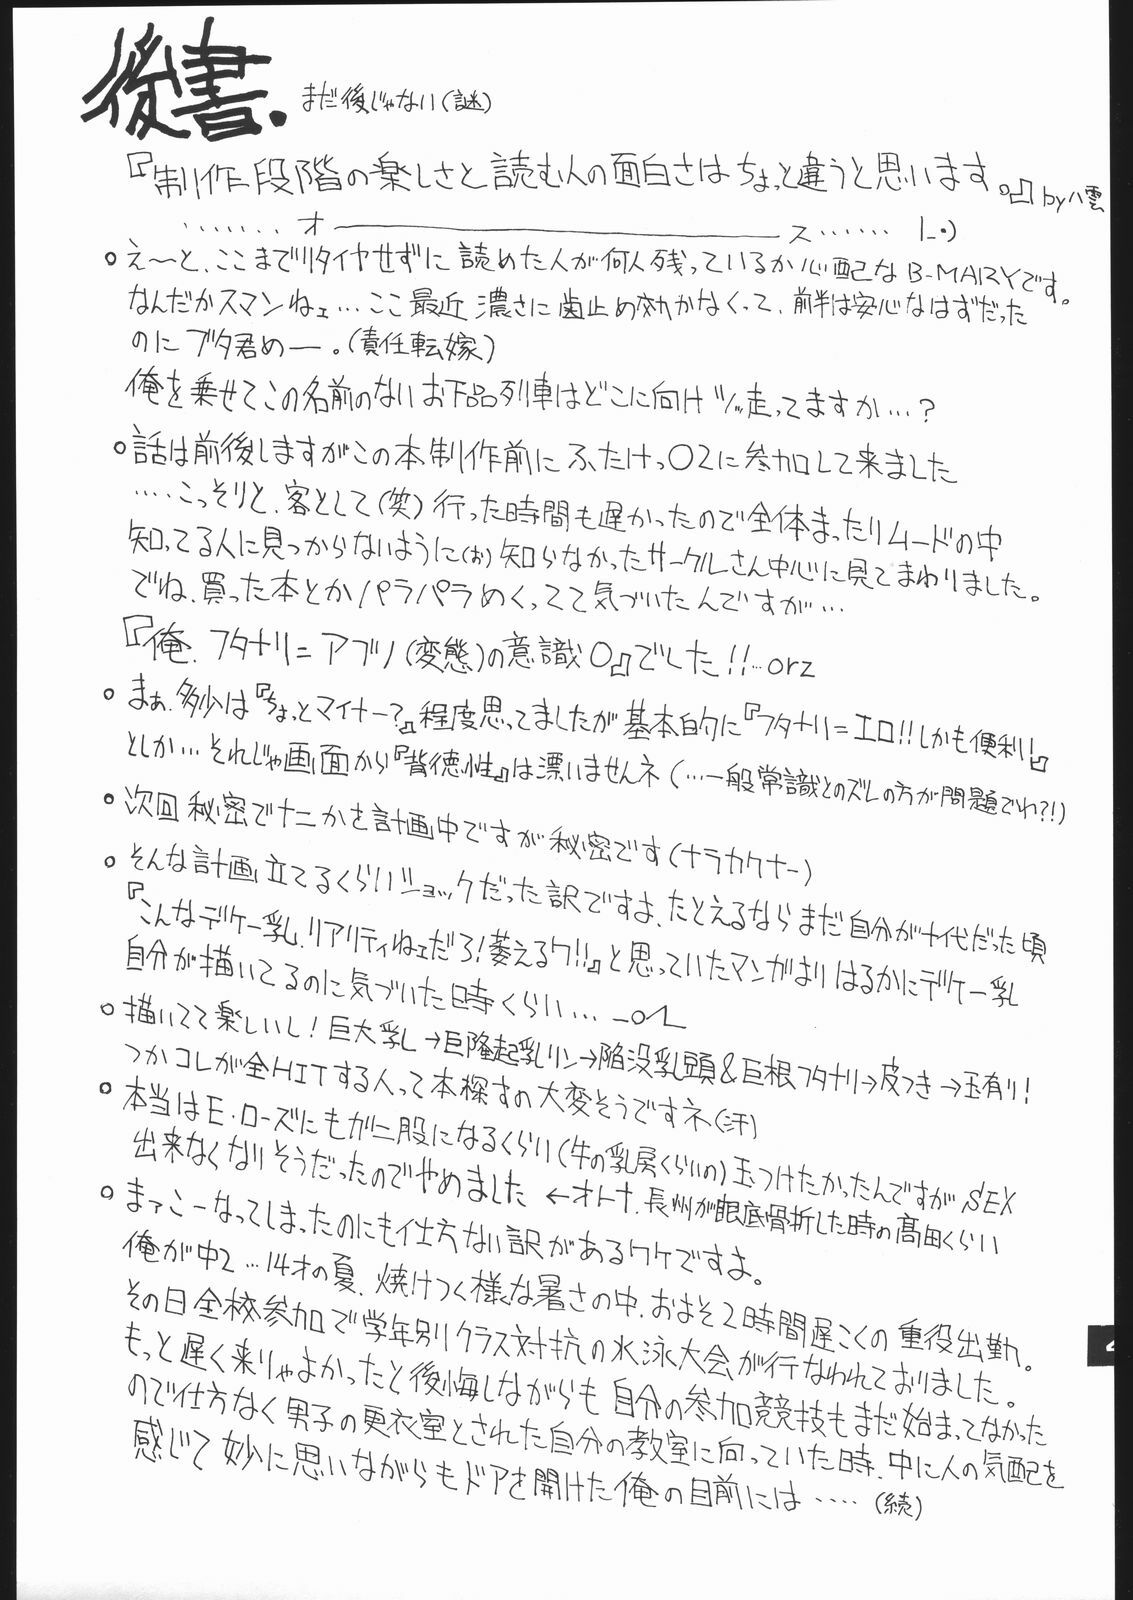 後書. まだ後じゃない(謎)
『制作段階の楽しさと読む人の面白さはちょっと違うと思います。』by八雲
・・・・・・・オ――――――――――ス・・・・・・ |_・)
○え～と、ここまでリタイヤせずに読めた人が何人残っているか心配なB-MARYです。
なんだかスマンねェ…ここ最近濃さに歯止め効かなくって、前半は安心なはずだった
のにブタ君めー。(責任転嫁)
俺を乗せてこの名前のないお下品列車はどこに向けツッ走ってますか…?
○話は前後しますがこの本制作前にふたけっ02に参加して来ました
‥‥こっそりと、客として(笑)行った時間も遅かったので全体まったりムードの中
知ってる人に見つからないように(お)知らなかったサークルさん中心に見てまわりました。
でね、買った本とかパラパラめくってて気づいたんですが…
『俺、フタナリ=アブノ(変態)の意識0』でした!!…orz
○まぁ、多少は『ちょっとマイナー?』程度思ってましたが基本的に『フタナリ=エロ!!しかも便利!』
としか…それじゃ画面から『背徳性』は漂いませんネ(…一般常識とのズレの方が問題でわ?!)
○次回秘密でナニかを計画中ですが秘密です(ナラカクナー)
○そんな計画立てるくらいショックだった訳ですよ、たとえるならまだ自分が十代だった頃
『こんなデケー乳、リアリティねェだろ!萎えるワ!!』と思っていたマンガよりはるかにデケー乳
自分が描いてるのに気づいた時くらい…
○描いてて楽しいし!巨大乳→巨隆起乳リン→陥没乳頭&巨根フタナリ→皮つき→玉有り!
つかコレが全HITする人って本探すの大変そうですネ(汗)
○本当はE・ローズにもが二股になるくらい(牛の乳房くらいの)玉つけたかったんですがSEX
出来なくなりそうだったのでやめました ←オトナ、長州が眼底骨折した時の髙田くらい
○まァこーなってしまったのにも仕方ない訳があるワケですよ。
俺が中2…14才の夏、焼けつく様な暑さの中、およそ2時間遅こくの重役出勤。
その日全校参加で学年別クラス対抗の水泳大会が行なわれておりました。
もっと遅く来りゃよかったと後悔しながらも自分の参加競技もまだ始まってなかった
ので仕方なく男子の更衣室とされた自分の教室に向っていた時、中に人の気配を
感じて妙に思いながらもドアを開けた俺の目前には‥‥(続)